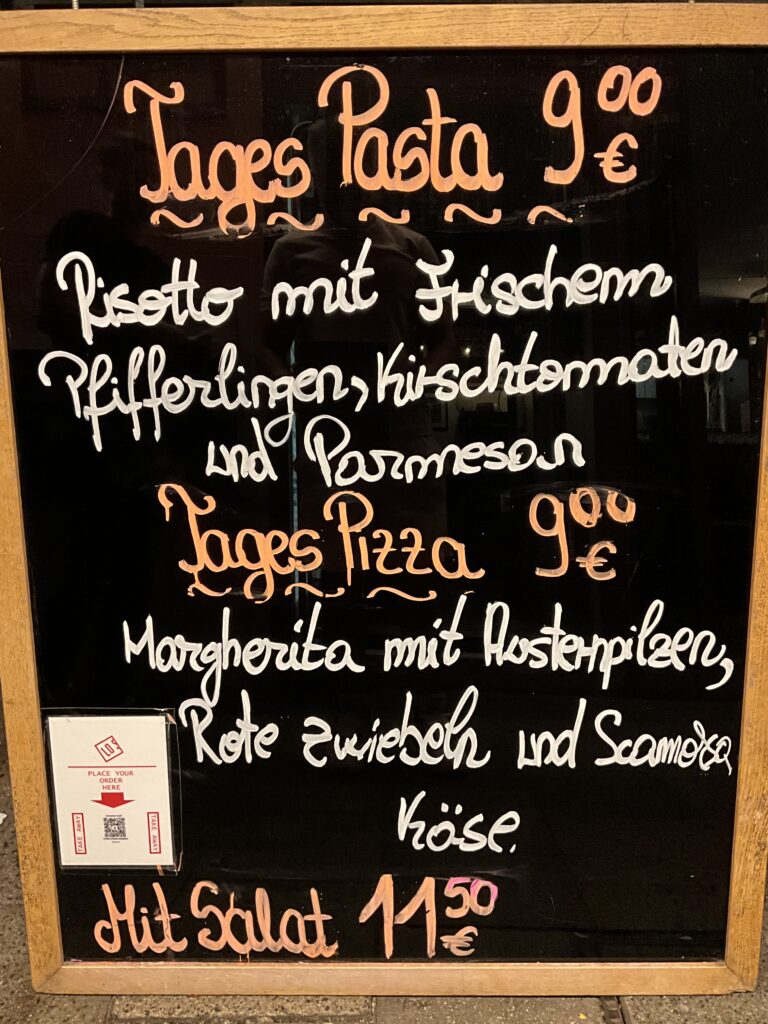 Tages Pasta 9⁰⁰ €
Risotto mit Frischem
Pfifferlingen, Kirschtomaten
und Parmesan
Tages Pizza 9⁰⁰ €
Margherita mit Austernpilzen,
Rote zwiebeln und Scamorza
Käse.
PLACE YOUR
ORDER
HERE
TAKE AWAY
TAKE AWAY
Mit Salat 11⁵⁰ €